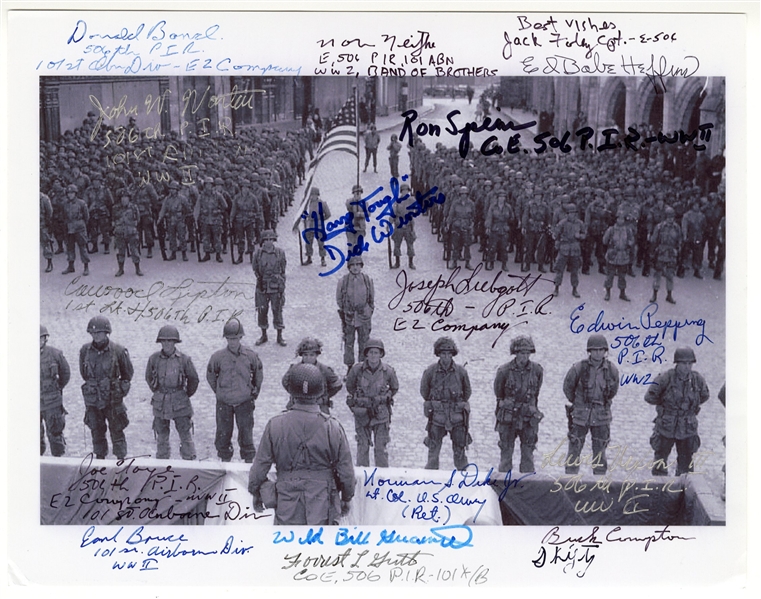 Donald Bond
506th P.I.R.
101st Abn Div - E2 Company
E, 506 PIR, 101 ABN
WW2, BAND OF BROTHERS
Best Wishes
Jack Foley Cpt.-E-506
Ed Babe Heffron
John W.
506th P.I.R.
101st E.
WW II
Ron Speirs
Co E. 506 P.I.R.-WWII
"Hang Tough"
Dick Winters
Carwood Lipton
1st Lt. 506th P.I.R
Joseph Liebgott
506th - P.I.R.
E2 Company
Edwin Pepping
506th
P.I.R.
WW2
Joe Toye
506th P.I.R.
E2 Company - WWII
101 st. Airborne Div
Norman S Dike Jr.
Lt. Col. U.S. Army
(Ret.)
Lewis Nixon
506th P.I.R.
WW II
Earl Bruce
101 st. Airborne Div.
WW II
Wild Bill Guarnere
Forrest L Guth
Co E, 506 P.I.R-101 A/B
Buck Compton